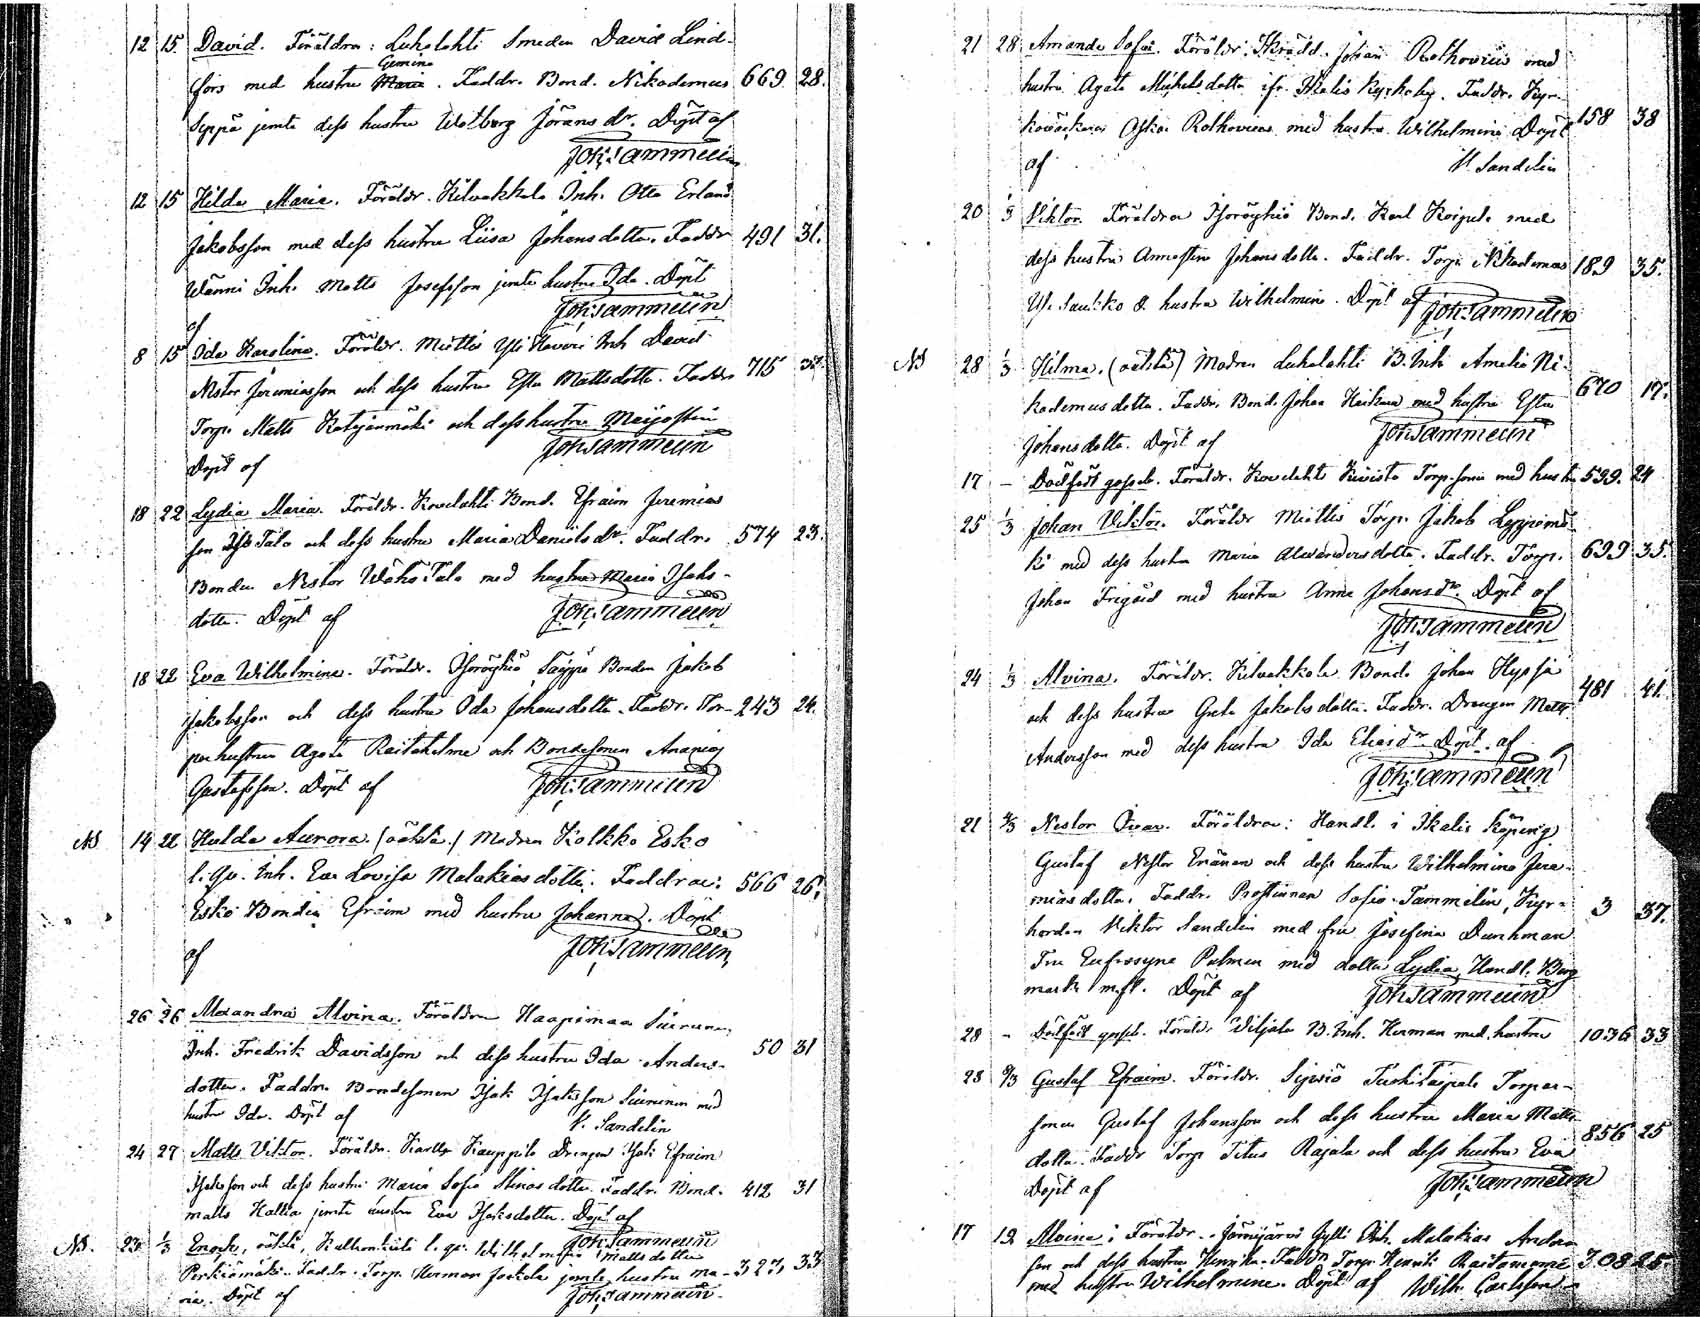 12 15 David. Föräldra: Luhalahti Smeden David Lind-
fors med hustru Gemina Maria. Faddr. Bond. Nikodemus 669 28.
Seppä jemte dess hustru Wolborg Jöransdr. Döpt af
Joh: Tammelin
12 15 Hilda Maria. Föräldr. Kilvakkala Inh. Otto Erland
Jakobsson med dess hustru Liisa Johansdotter. Faddr 491 31.
Wänni Inh. Matts Josefsson jemte hustru Ida. Döpt
af Joh: Tammelin
8 15 Ida Karolina. Föräldr. Miettis Yli Inh David
Nestor Jeremiasson och dess hustru Ester Mattsdotter. Faddr 715
Torp. Matts Katajamäki och dess hustru
Döpt af Joh: Tammelin
18 22 Lydia Maria. Föräldr. Kovelahti Bond. Efraim Jeremias
son Yli Talo och dess hustru Maria Danielsdr. Faddr. 574 23.
Bonden Nestor Wäha Talo med hustru Maria Isaks-
dotter. Döpt af Joh: Tammelin
18 22 Eva Wilhelmina. Föräldr. Isoröyhiö Säyppä Bonden Jakob
Jakobsson och dess hustru Ida Johansdotter. Faddr. Tor- 243 24.
parhustrun Agata Raitaholma och Bondesonen Ananias
Gustafsson. Döpt af Joh: Tammelin
NB 14 22 Hulda Aurora (oäkta) Modren Kolkko Esko
l. qv. Inh. Eva Lovisa Malakiasdotter. Faddrar: 566 26.
Esko Bonden Efraim med hustru Johanna. Döpt
af Joh: Tammelin
26 26 Alexandra Alvina. Föräldra Haapimaa Siuruna,
Inh. Fredrik Davidsson och dess hustru Ida Anders- 50 31
dotter. Faddra Bondesonen Isak Isaksson Siurunen med
hustru Ida. Döpt af V. Sandelin
24 27 Matts Viktor. Föräldr. Kauppila Drengen Isak Efraim
Isaksson och dess hustru Maria Sofia dotter. Faddr. Bond. 412 31
Matts Kallia jemte hustru Eva Isaksdotter. Döpt af
Joh: Tammelin
NB. 23 1/3 Enoch, oäkta, l. qv. Wilhelmina Mattsdotter
Perkiömäki. Faddr. Torp. Herman Jockala jemte hustru Ma- 327, 33
ria. Döpt af Joh: Tammelin
21 28 Amanda Sofia. Föräldr. Skrädd. Johan Rothovius med
hustru Agata Michelsdotter ifr. Ikalis Kyrkoby. Faddr. Kyr- 158 38
kovaktaren Oskar Rothovius med hustru Wilhelmina Döpt
af V. Sandelin
20 1/3 Viktor. Föräldra Isoröyhiö Bond. Karl Koipule med
dess hustru Annastina Johansdotter. Faddr. Torp. Nikodemus 189 35.
Saukko & hustru Wilhelmina. Döpt af Joh: Tammelin
NB 28 1/3 Hilma, (oäkta) Modren Luhalahti B. Inh Amalia Ni-
kodemusdotter. Faddr. Bond. Johan Heikura med hustru Ester 670 17.
Johansdotter. Döpt af Joh: Tammelin
17 – Dödfödt gosseb. Föräldr. Kovelahti Kivistö Torp.sonen med hustru 599. 24
25 1/3 Johan Viktor. Föräldr Miettis Torp. Jakob Leppämä-
ki med dess hustru Maria Alexandersdotter. Faddr. Torp. 699 35.
Johan Frigård med hustru Anna Johansdr. Döpt af
Joh: Tammelin
24 1/3 Alvina. Föräldr. Kilvakkala Bond. Johan Hyppä
och dess hustru Greta Jakobsdotter. Faddr. Drengen Matts 481 41.
Andersson med dess hustru Ida Eliasdr Döpt af
Joh: Tammelin
21 2/3 Nestor Ivar. Föräldra: Handl. i Ikalis Köping
Gustaf Nestor Enänen och dess hustru Wilhelmina Jere-
miasdotter. Faddr. Prostinnan Sofia Tammelin, Kyr- 3 37.
herden Viktor Sandelin med fru Josefina Dunkman
Fru Eufrosyne Palmen med dotter Lydia, Handl. Berg
mark m.fl. Döpt af Joh: Tammelin
28 – Dödfödt gosseb. Föräldr Viljala B. Inh. Herman med hustru 1036 33
28 9/3 Gustaf Efraim. Föräldr. Sipsiö Turkitaipale Torpar-
sonen Gustaf Johansson och dess hustru Maria Matts-
dotter. Faddr Torp Titus Rajala och dess hustru Eva 856 25
Döpt af Joh: Tammelin
17 12 Alvina; Föräldr. Jämijärvi Inh. Malakias Anders
son och dess hustru Henrika. Faddr Torp. Henrik Raitomomä 308 25.
med hustru Wilhelmina. Döpt af Wilh. Carlsson